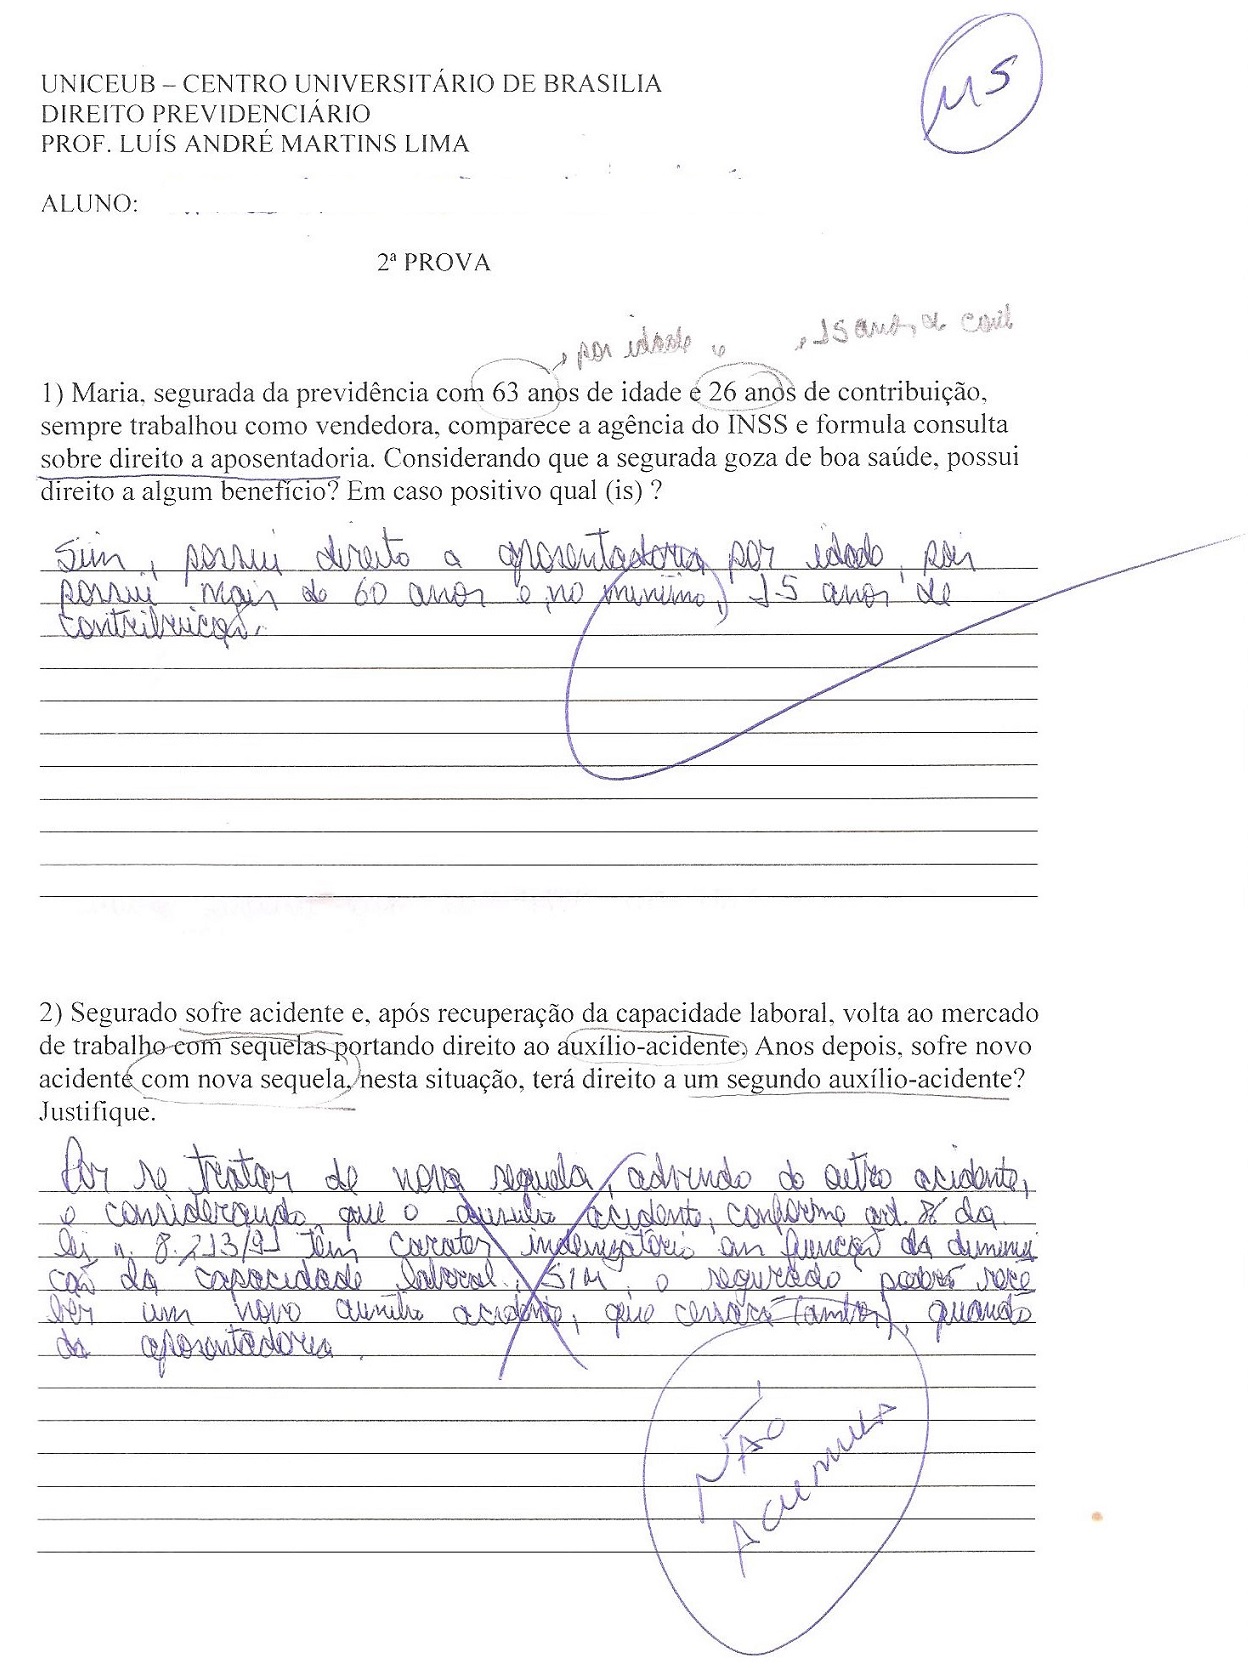 MS
UNICEUB – CENTRO UNIVERSITÁRIO DE BRASILIA
DIREITO PREVIDENCIÁRIO
PROF. LUÍS ANDRÉ MARTINS LIMA
ALUNO:
2ª PROVA
por idade 15 anos de cont
1) Maria, segurada da previdência com 63 anos de idade e 26 anos de contribuição,
sempre trabalhou como vendedora, comparece a agência do INSS e formula consulta
sobre direito a aposentadoria. Considerando que a segurada goza de boa saúde, possui
direito a algum benefício? Em caso positivo qual (is) ?
Sim, possui direito a aposentadoria por idade, pois
possui mais de 60 anos e, no mínimo, 15 anos de
contribuição.
2) Segurado sofre acidente e, após recuperação da capacidade laboral, volta ao mercado
de trabalho com sequelas portando direito ao auxílio-acidente. Anos depois, sofre novo
acidente com nova sequela, nesta situação, terá direito a um segundo auxílio-acidente?
Justifique.
Por se tratar de nova sequela, advindo de outro acidente,
e considerando que o auxílio acidente, conforme art. da
lei n. 8.213/91 têm carater indenizatório em função da diminui
ção da capacidade laboral, SIM, o segurado poderá rece
ber um novo auxílio acidente, que cessará (ambos), quando
da aposentadoria.
NÃO
ACUMULA